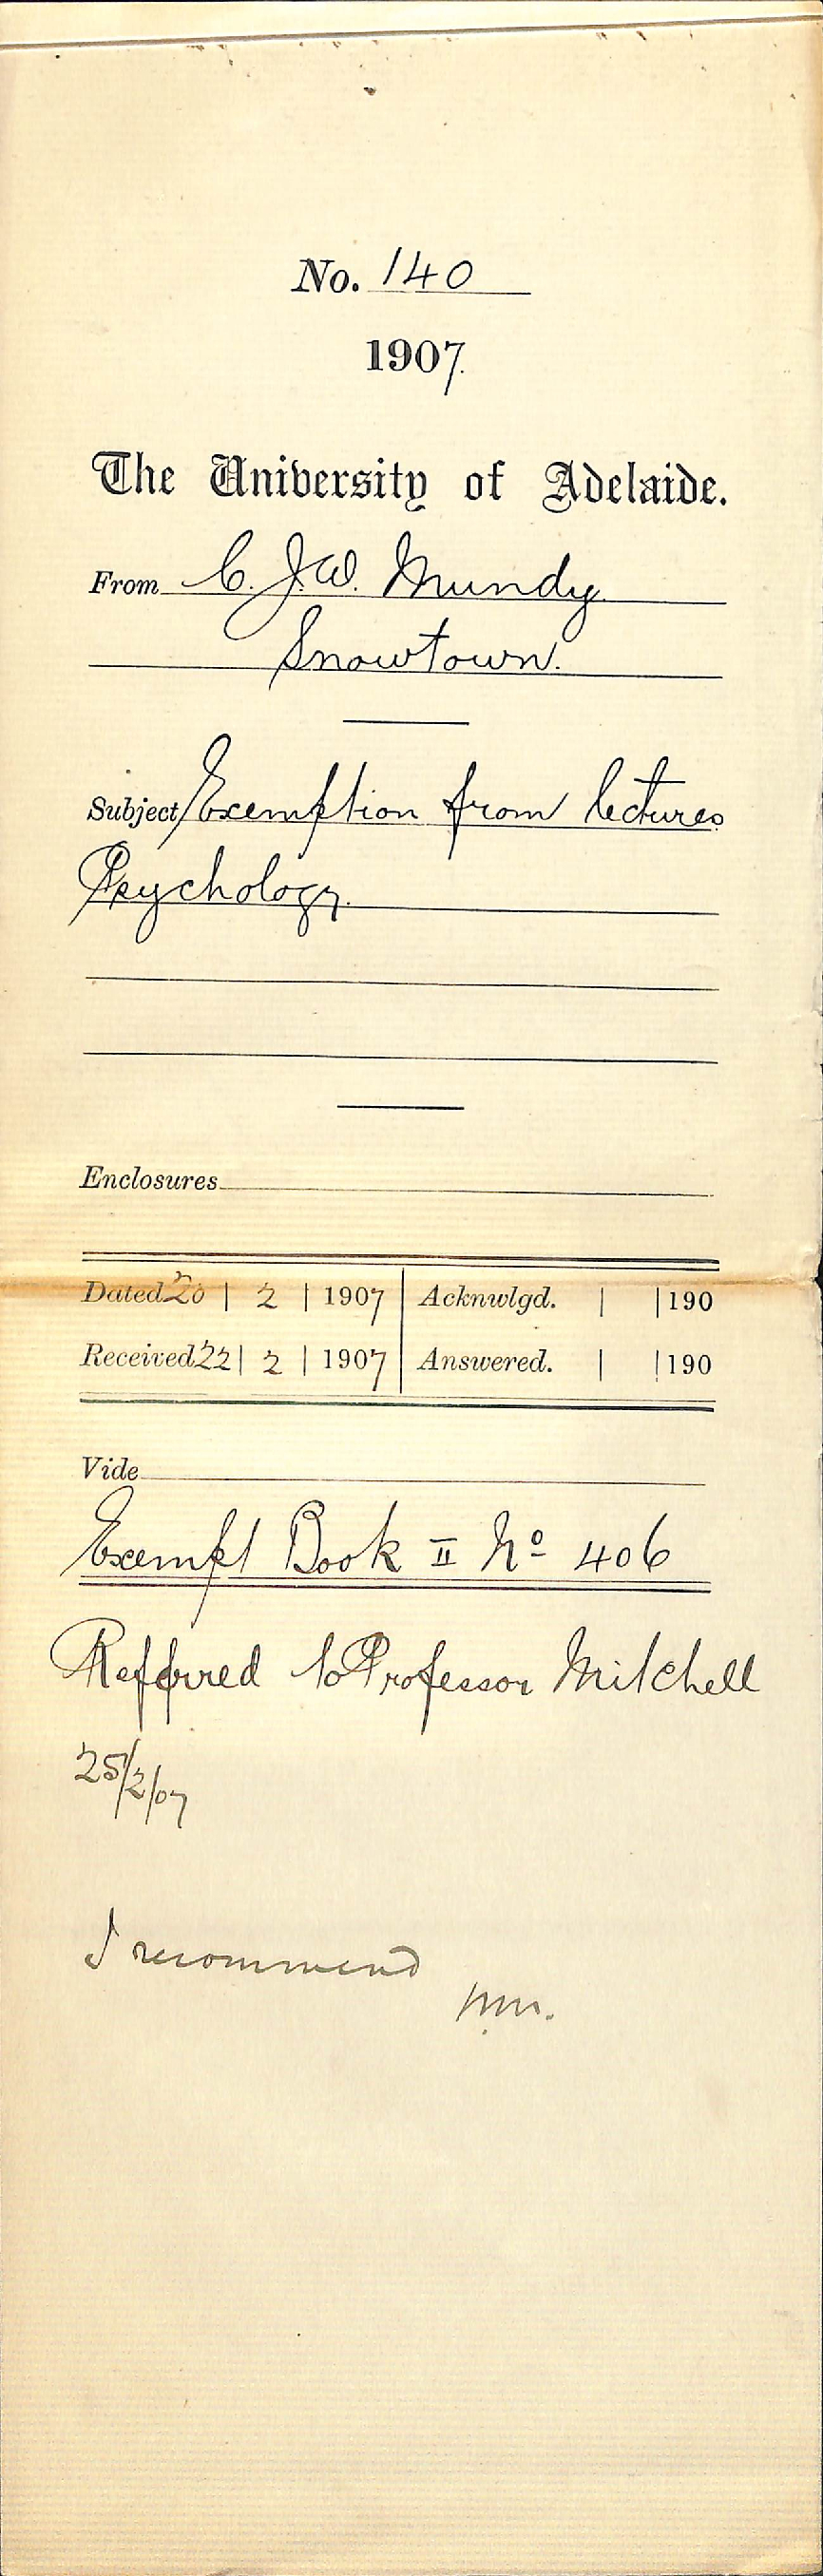 No. 140
1907.
The University of Adelaide.
From C. J. W. Mundy
Snowtown.
Subject Exemption from lectures
Psychology.
Enclosures
Dated 20 | 2 | 1907 | Acknwlgd. | | 190
Received 22 | 2 | 1907 | Answered. | | 190
Vide
Exempt Book II No 406
Referred to Professor Mitchell
25/2/07
I recommend